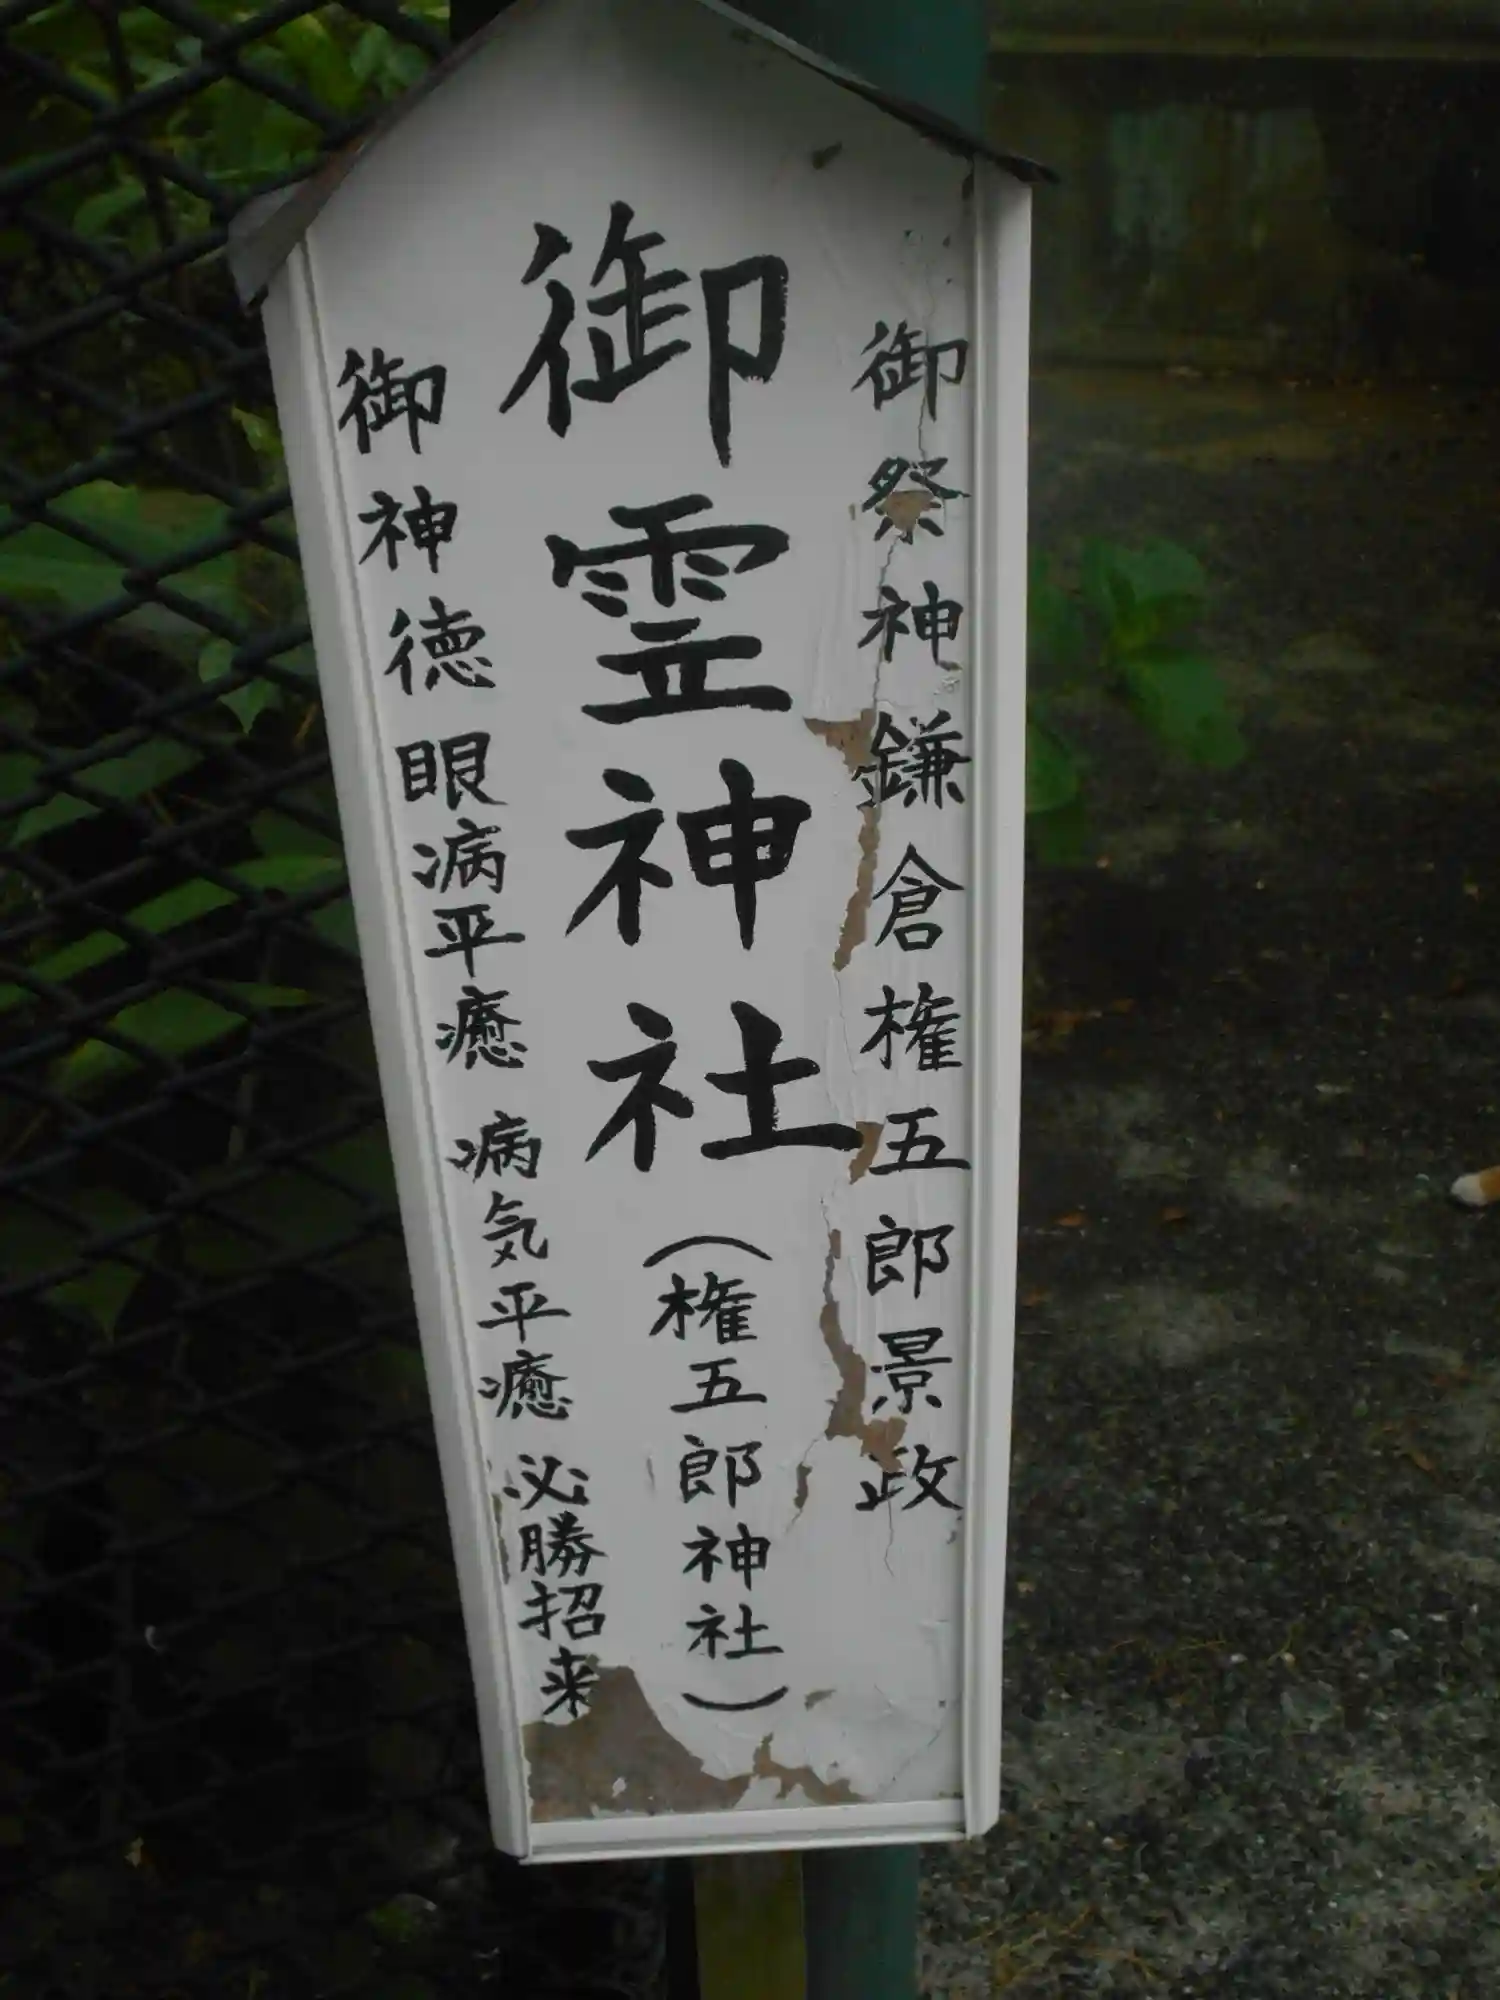 御祭神 鎌倉権五郎景政
御霊神社(権五郎神社)
御神徳 眼病平癒 病気平癒 必勝招来